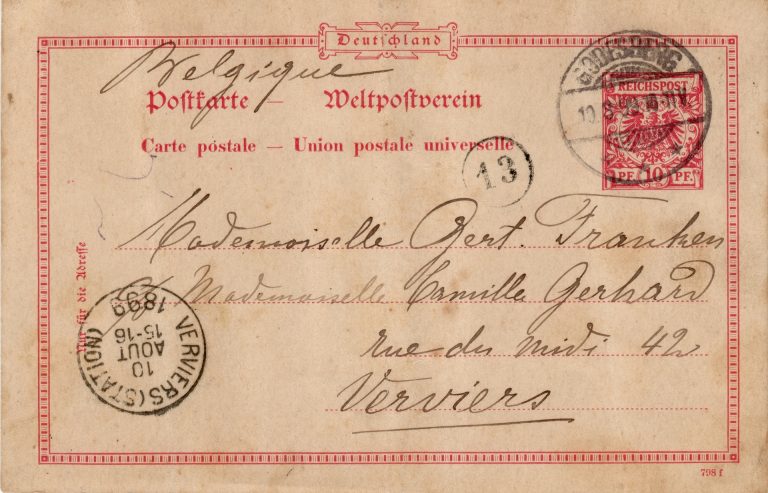 Deutschland
Belgique
Postkarte — Weltpostverein
Carte postale — Union postale universelle
GODESBERG
10 8
REICHSPOST
10 PF. PF.
13
Mademoiselle Gert. Franken
Mademoiselle Camille Gerhard
rue du midi 42
Verviers
Nur für die Adresse
VERVIERS (STATION)
10
AOUT
15-16
1899
798 f